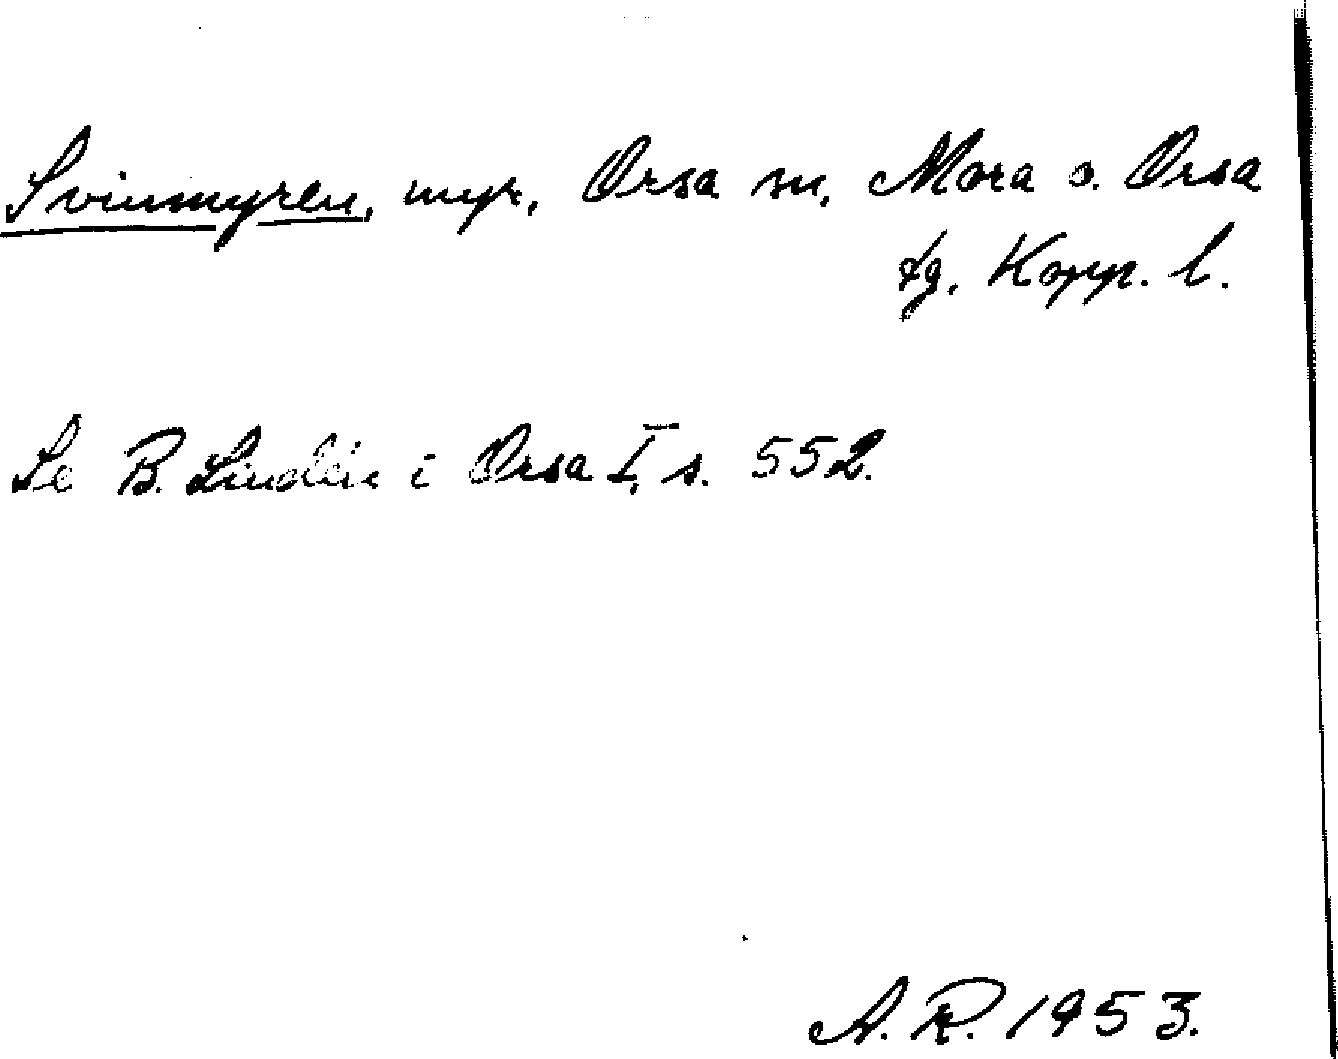 Svinmyren, myr, Orsa sn, Mora o. Orsa
tg. Kopp. l.
Se B. Lindén i Orsa I, s. 552.
A. R. 1953.